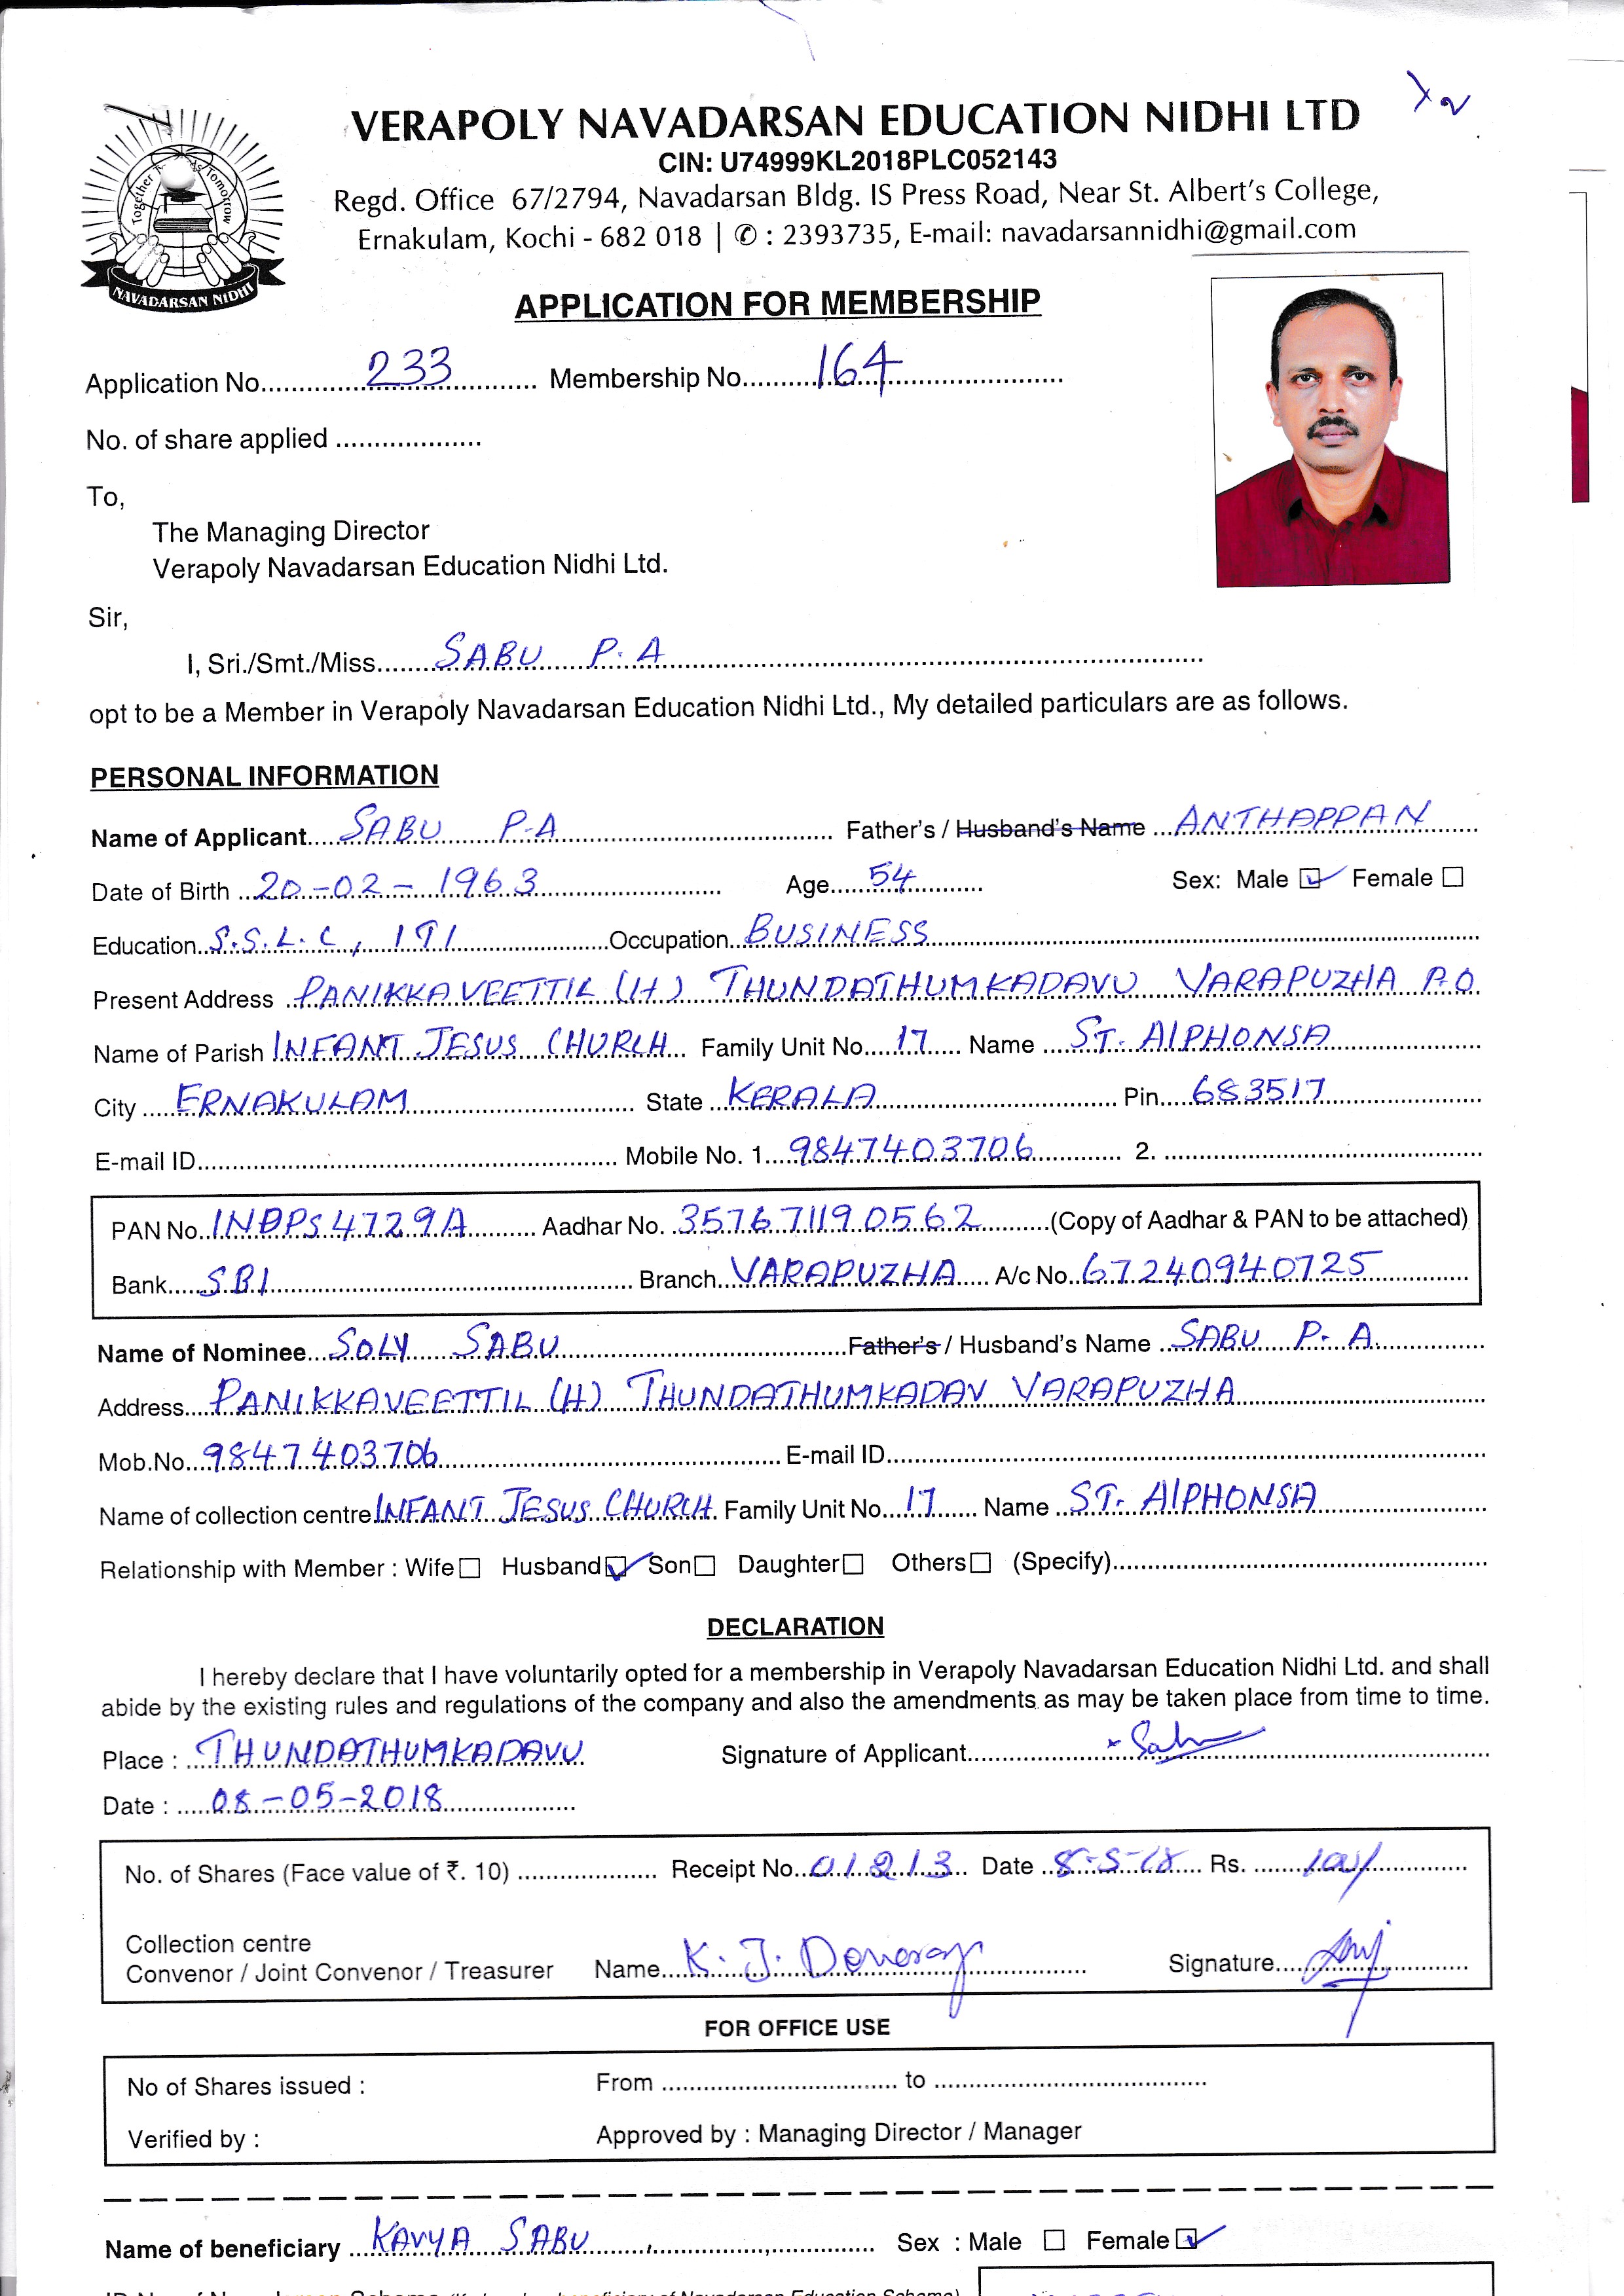 VERAPOLY NAVADARSAN EDUCATION NIDHI LTD
CIN: U74999KL2018PLC052143
Regd. Office 67/2794, Navadarsan Bldg. IS Press Road, Near St. Albert's College,
Ernakulam, Kochi - 682 018 | ✆ : 2393735, E-mail: navadarsannidhi@gmail.com
NAVADARSAN NIDHI
APPLICATION FOR MEMBERSHIP
Application No. 233 Membership No. 164
No. of share applied
To,
The Managing Director
Verapoly Navadarsan Education Nidhi Ltd.
Sir,
I, Sri./Smt./Miss. SABU P.A
opt to be a Member in Verapoly Navadarsan Education Nidhi Ltd., My detailed particulars are as follows.
PERSONAL INFORMATION
Name of Applicant SABU P.A Father's / Husband's Name ANTHAPPAN
Date of Birth 20-02-1963 Age 54 Sex: Male ☑ Female ☐
Education S.S.L.C, ITI Occupation BUSINESS
Present Address PANIKKAVEETTIL (H) THUNDATHUMKADAVU VARAPUZHA P.O
Name of Parish INFANT JESUS CHURCH Family Unit No. 17 Name ST. AlPHONSA
City ERNAKULAM State KERALA Pin 683517
E-mail ID Mobile No. 1. 9847403706 2.
PAN No. INDPS4729A Aadhar No. 357671190562 (Copy of Aadhar & PAN to be attached)
Bank SBI Branch VARAPUZHA A/c No. 67240940725
Name of Nominee SOLY SABU Father's / Husband's Name SABU P. A.
Address PANIKKAVEETTIL (H) THUNDATHUMKADAV VARAPUZHA
Mob.No. 9847403706 E-mail ID
Name of collection centre INFANT JESUS CHURCH Family Unit No. 17 Name ST. AlPHONSA
Relationship with Member : Wife ☐ Husband ☑ Son ☐ Daughter ☐ Others ☐ (Specify)
DECLARATION
I hereby declare that I have voluntarily opted for a membership in Verapoly Navadarsan Education Nidhi Ltd. and shall
abide by the existing rules and regulations of the company and also the amendments as may be taken place from time to time.
Place : THUNDATHUMKADAVU Signature of Applicant Sabu
Date : 08-05-2018
No. of Shares (Face value of ₹. 10) Receipt No. 01213 Date 8-5-18 Rs. 100/
Collection centre
Convenor / Joint Convenor / Treasurer Name K. J. Signature
FOR OFFICE USE
No of Shares issued : From to
Verified by : Approved by : Managing Director / Manager
Name of beneficiary KAVYA SABU Sex : Male ☐ Female ☑